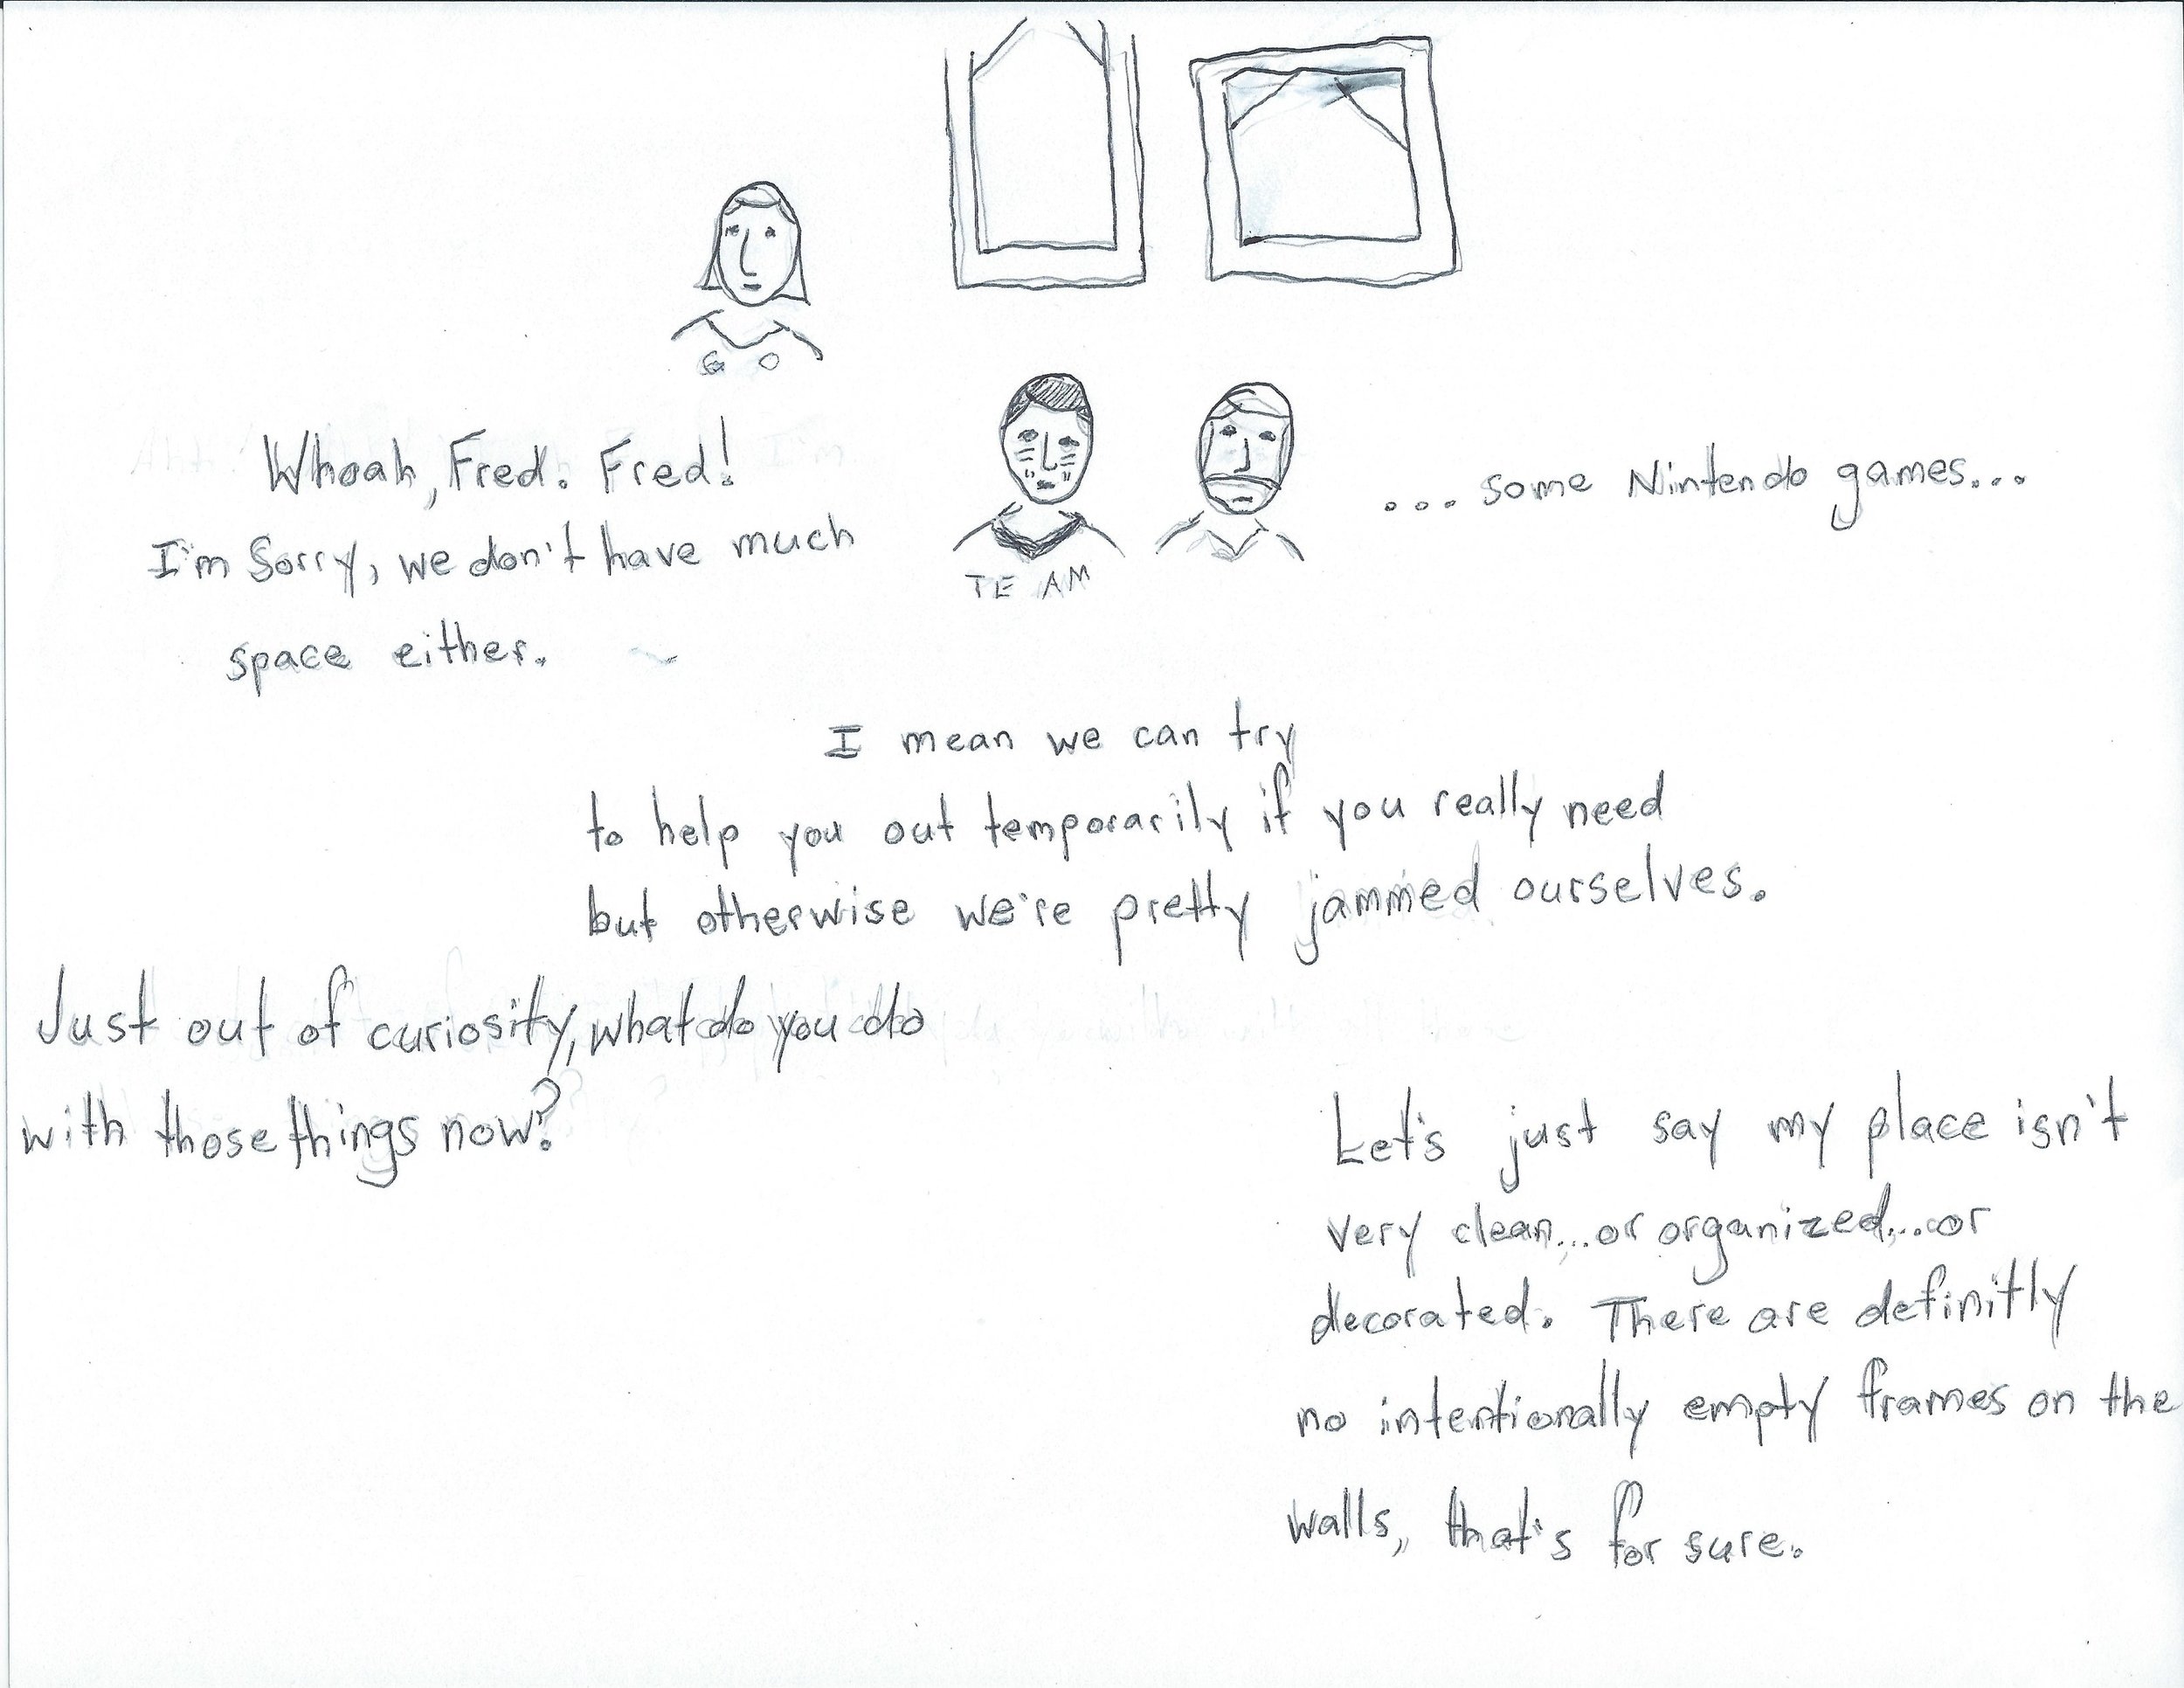 G O
Whoah, Fred. Fred!
I'm Sorry, we don't have much
space either.
TE AM
... some Nintendo games...
I mean we can try
to help you out temporarily if you really need
but otherwise we're pretty jammed ourselves.
Just out of curiosity, what do you do
with those things now?
Let's just say my place isn't
very clean...or organized...or
decorated. There are definitly
no intentionally empty frames on the
walls, that's for sure.